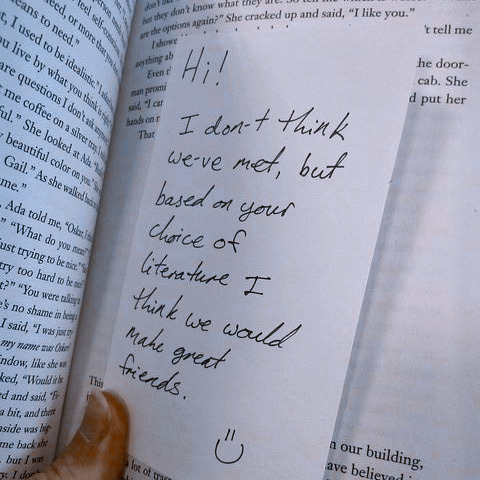 eans to need."
, I used to be idealistic.
me coffee on a silver tray.
ful." She looked at Ada.
beautiful color on you."
Gail." As she walked back
me."
Ada told me,
"What do you mean
ust trying to be nice."
try too hard to be
"You were talking
's no shame in being
I said, "I was just
my name was Oskar?
ndow, like she was
ked, "Would it be
ed and said,
a bit, and there
nside was big-
me back she
but I was
but they don't know what they are.
are the options again?" She cracked up and said, "I like you."
I showe
anything ab
Even t
man promi
said, "I can
hands on r
That
't tell me
he door-
cab. She
d put her
Hi!
I don-t think
we-ve met, but
based on your
choice of
literature I
think we would
make great
friends.
This
n our building,
ave believed
a lot of